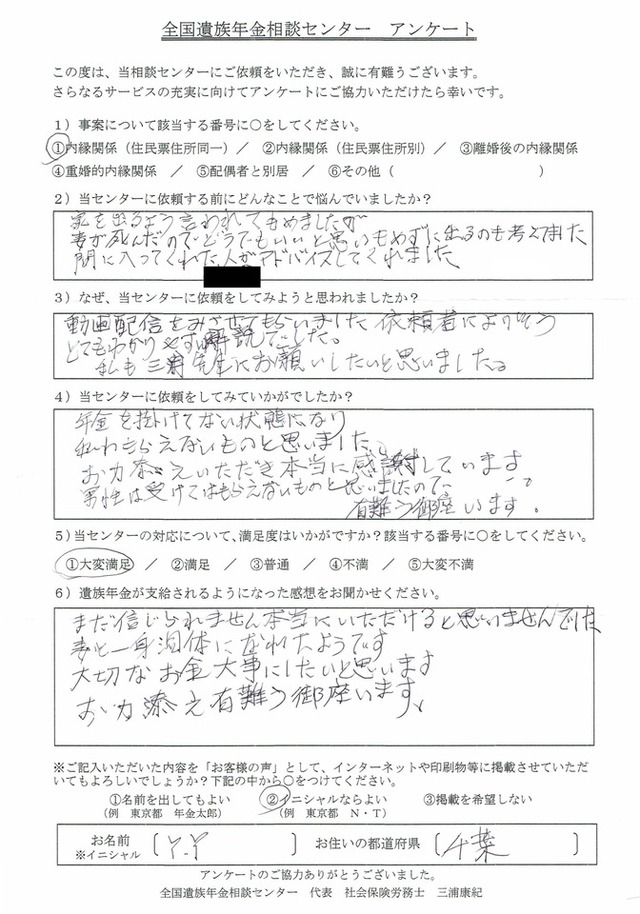 全国遺族年金相談センター　アンケート
この度は、当相談センターにご依頼をいただき、誠に有難うございます。
さらなるサービスの充実に向けてアンケートにご協力いただけたら幸いです。
１）事案について該当する番号に○をしてください。
①内縁関係（住民票住所同一）／　②内縁関係（住民票住所別）／　③離婚後の内縁関係
④重婚的内縁関係　／　⑤配偶者と別居　／　⑥その他（　　　　　　　　　　）
２）当センターに依頼する前にどんなことで悩んでいましたか？
家を出るよう言われてもめましたが
妻が死んだのでどうでもいいと思いもめずに出るのも考えてました
間に入ってくれた人がアドバイスしてくれました
３）なぜ、当センターに依頼をしてみようと思われましたか？
動画配信をみさせてもらいました 依頼者によりそう
とてもわかりやすい解説でした。
私も三浦先生にお願いしたいと思いました。
４）当センターに依頼をしてみていかがでしたか？
年金を掛けてない状態になり
もらえないものと思いました、
お力添えいただき本当に感謝しています
男性は受けてはもらえないものと思いましたので、
有難う御座います。
５）当センターの対応について、満足度はいかがですか？該当する番号に○をしてください。
①大変満足　／　②満足　／　③普通　／　④不満　／　⑤大変不満
６）遺族年金が支給されるようになった感想をお聞かせください。
まだ信じられません本当にいただけると思いませんでした
妻と一身同体になれたようです
大切なお金大事にしたいと思います
お力添え有難う御座います。
※ご記入いただいた内容を「お客様の声」として、インターネットや印刷物等に掲載させていただ
いてもよろしいでしょうか？下記の中から○をつけてください。
①名前を出してもよい　②イニシャルならよい　③掲載を希望しない
（例　東京都　年金太郎）　（例　東京都　Ｎ・Ｔ）
お名前　〔 Y.Y 〕　お住いの都道府県　〔 千葉 〕
※イニシャル
アンケートのご協力ありがとうございました。
全国遺族年金相談センター　代表　社会保険労務士　三浦康紀